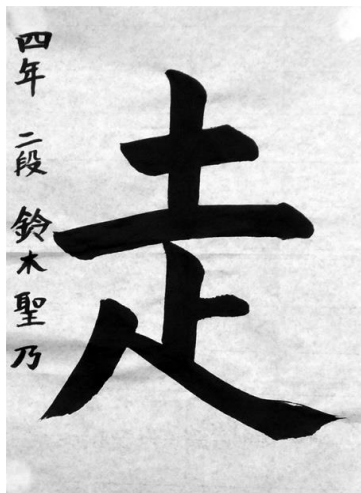 走
四年 二段 鈴木聖乃